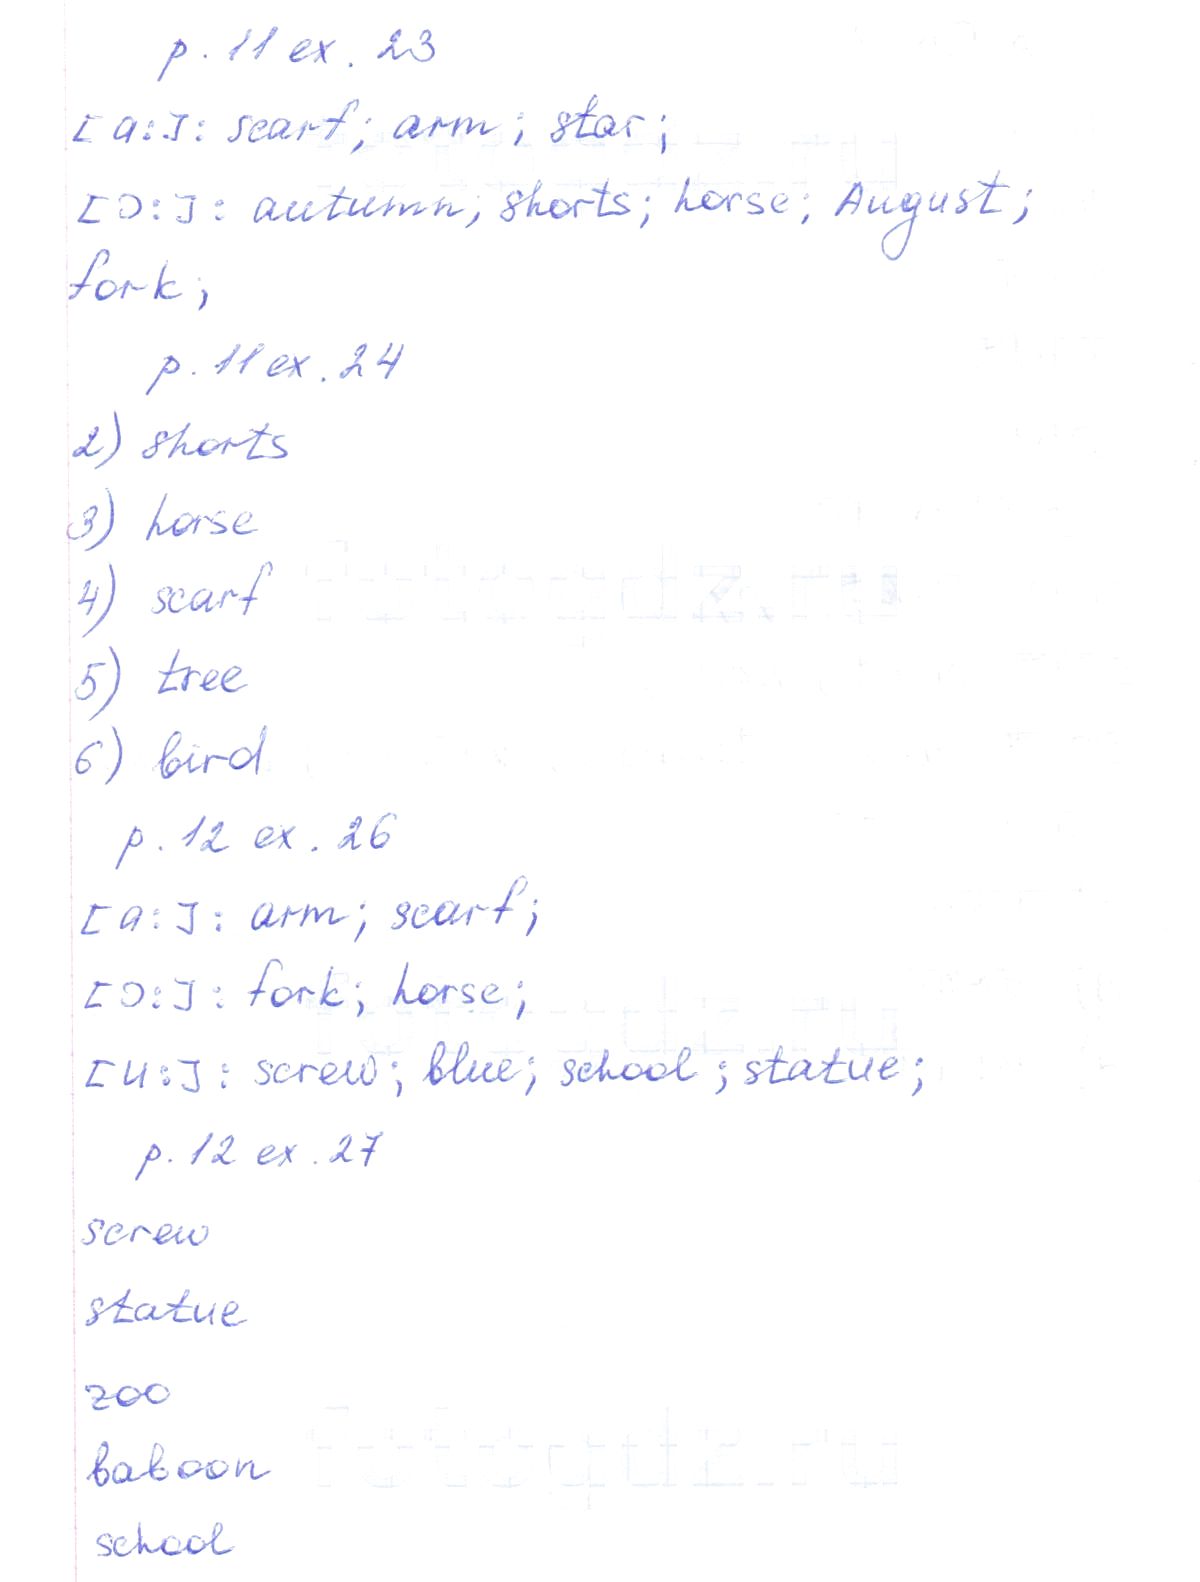 p. 11 ex. 23
[a:]: scarf; arm; star;
[ɔ:]: autumn; shorts; horse; August;
fork;
p. 11 ex. 24
2) shorts
3) horse
4) scarf
5) tree
6) bird
p. 12 ex. 26
[a:]: arm; scarf;
[ɔ:]: fork; horse;
[u:]: screw; blue; school; statue;
p. 12 ex. 27
screw
statue
zoo
baboon
school